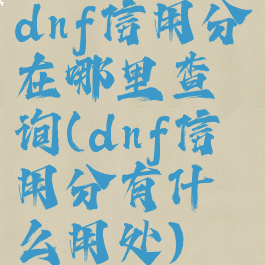 dnf信用分
在哪里查
询(dnf信
用分有什
么用处)